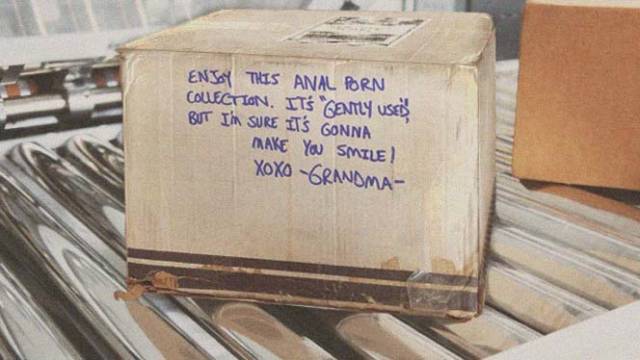 ENJOY THIS ANAL PORN
COLLECTION. IT'S "GENTLY USED",
BUT I'm SURE IT'S GONNA
MAKE YOU SMILE!
XOXO -GRANDMA-